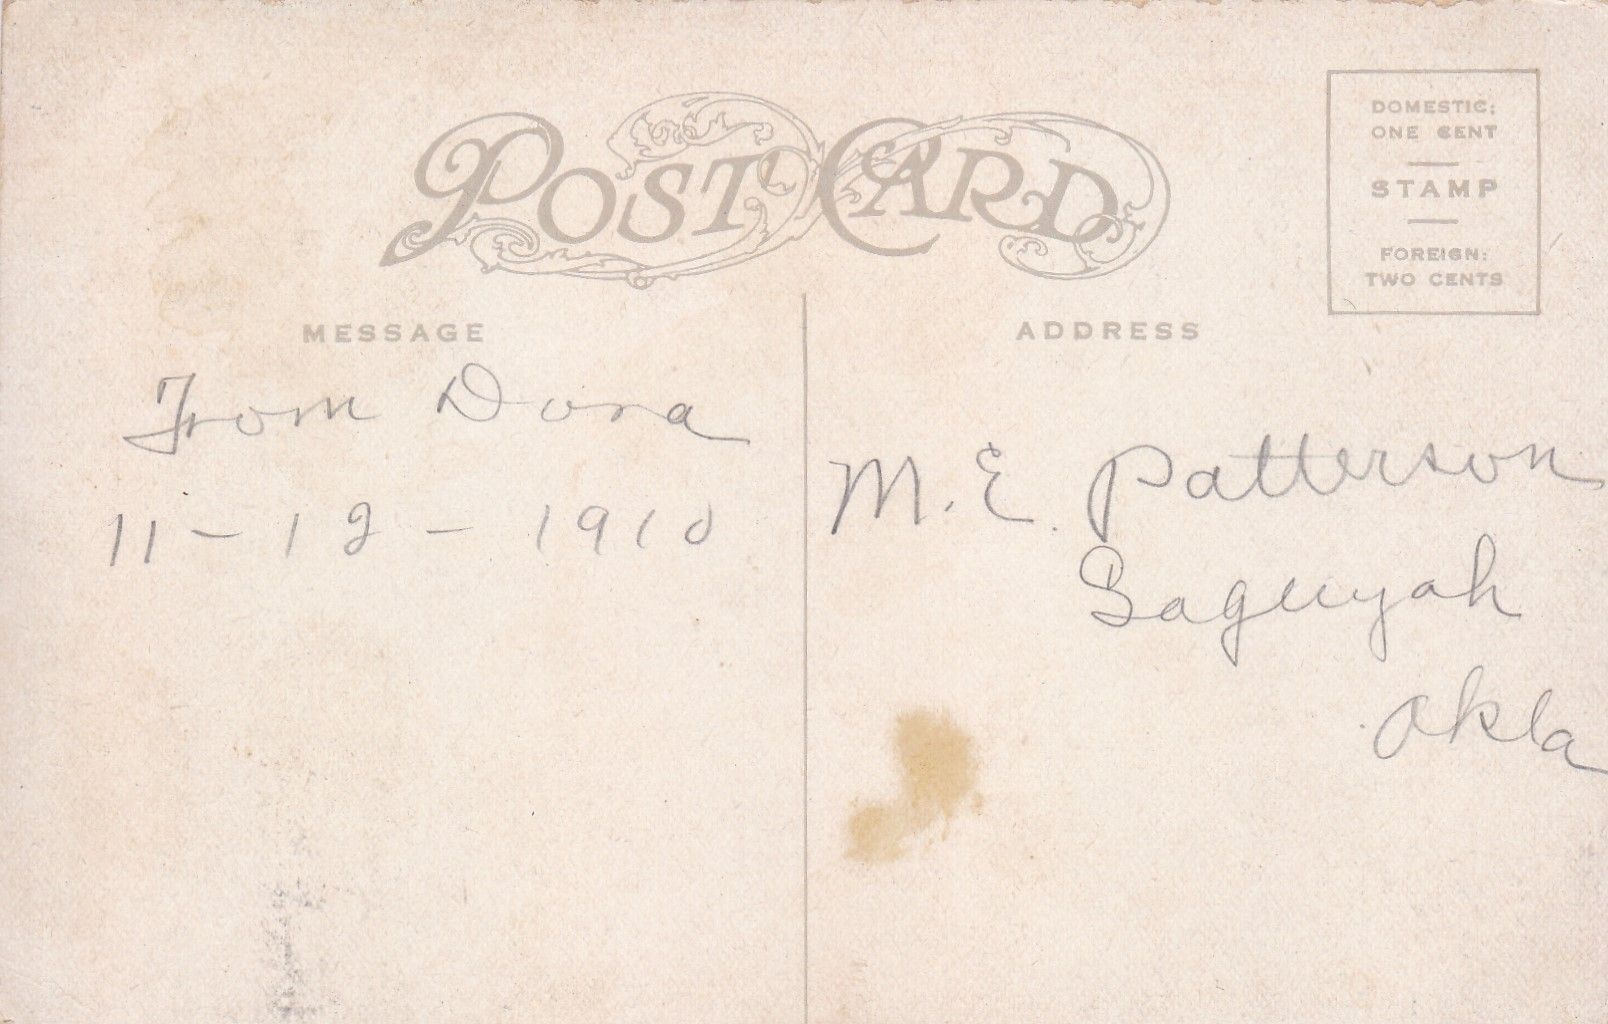 POST CARD
DOMESTIC:
ONE CENT
STAMP
FOREIGN:
TWO CENTS
MESSAGE
From Dora
11-12-1910
ADDRESS
M. E. Patterson
Sageeyah
Okla